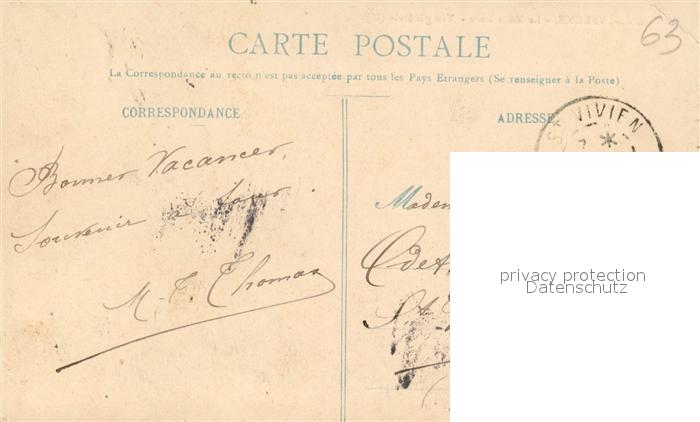 63
CARTE POSTALE
La Correspondance au recto n'est pas acceptée par tous les Pays Etrangers (Se renseigner à la Poste)
CORRESPONDANCE
ADRESSE
ST VIVIEN
Bonnes Vacances,
Souvenir à tous.
M-T. Thomas
Madem
Odet
St
privacy protection
Datenschutz